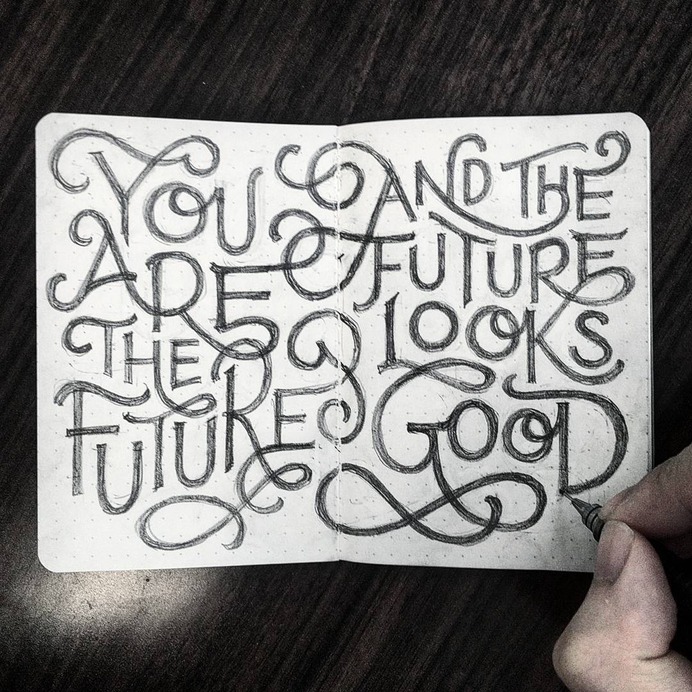 YOU
ARE
THE
FUTURE
AND THE
FUTURE
LOOKS
GOOD